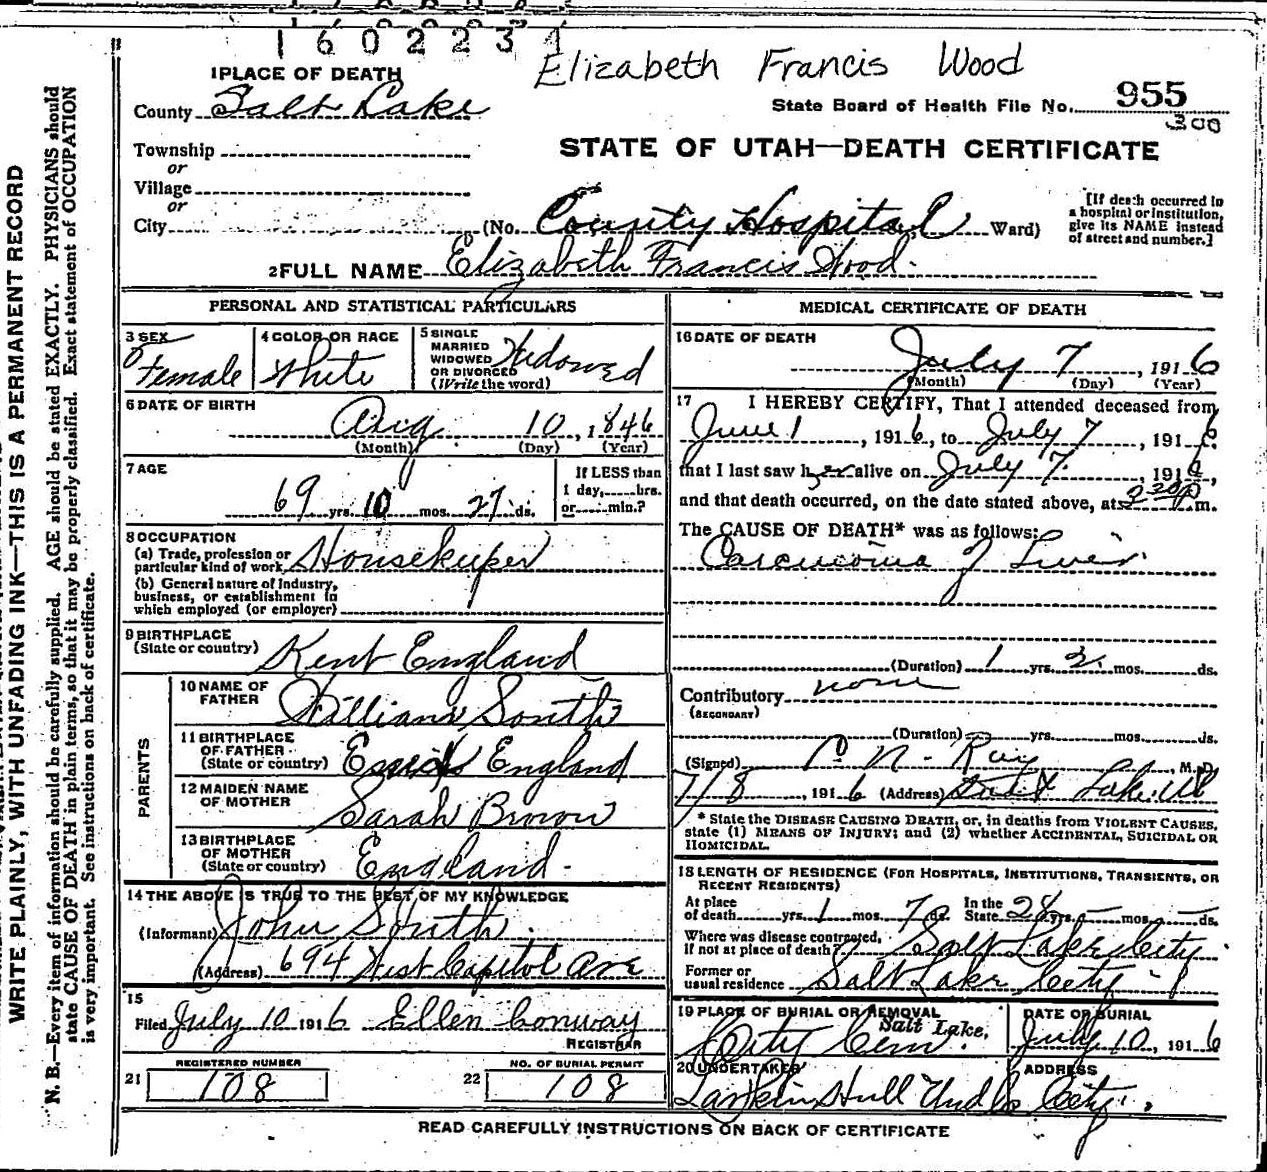 1602234
Elizabeth Francis Wood
1 PLACE OF DEATH
County Salt Lake
State Board of Health File No. 955
300
Township
or
Village
or
City
STATE OF UTAH—DEATH CERTIFICATE
(No. County Hospital Ward)
[If death occurred in a hospital or institution, give its NAME instead of street and number.]
2 FULL NAME Elizabeth Francis Wood.
PERSONAL AND STATISTICAL PARTICULARS
3 SEX Female
4 COLOR OR RACE White
5 SINGLE MARRIED WIDOWED OR DIVORCED (Write the word) Widowed
6 DATE OF BIRTH Aug 10, 1846
(Month) (Day) (Year)
7 AGE 69 yrs. 10 mos. 27 ds.
If LESS than 1 day, hrs. or min.?
8 OCCUPATION
(a) Trade, profession or particular kind of work Housekeeper
(b) General nature of Industry, business, or establishment in which employed (or employer)
9 BIRTHPLACE (State or country) Kent England
PARENTS
10 NAME OF FATHER William South
11 BIRTHPLACE OF FATHER (State or country) England
12 MAIDEN NAME OF MOTHER Sarah Brown
13 BIRTHPLACE OF MOTHER (State or country) England.
14 THE ABOVE IS TRUE TO THE BEST OF MY KNOWLEDGE
(Informant) John South.
(Address) 694 West Capitol Ave
15
Filed July 10 1916 Ellen Conway
REGISTRAR
REGISTERED NUMBER
21 108
NO. OF BURIAL PERMIT
22 108
MEDICAL CERTIFICATE OF DEATH
16 DATE OF DEATH
July 7, 1916
(Month) (Day) (Year)
17 I HEREBY CERTIFY, That I attended deceased from
June 1, 1916, to July 7, 1916
that I last saw her alive on July 7. 1916,
and that death occurred, on the date stated above, at 230 p m.
The CAUSE OF DEATH* was as follows:
Carcinoma of Liver.
(Duration) 1 yrs. 2. mos. ds.
Contributory none
(SECONDARY)
(Duration) yrs. mos. ds.
(Signed) N. Ray, M.D.
7/8, 1916 (Address) Salt Lake Ut
* State the DISEASE CAUSING DEATH, or, in deaths from VIOLENT CAUSES, state (1) MEANS OF INJURY; and (2) whether ACCIDENTAL, SUICIDAL OR HOMICIDAL.
18 LENGTH OF RESIDENCE (FOR HOSPITALS, INSTITUTIONS, TRANSIENTS, OR RECENT RESIDENTS)
At place of death yrs. 1 mos. 7 ds. In the State 28 yrs. – mos. – ds.
Where was disease contracted, if not at place of death? Salt Lake City.
Former or usual residence Salt Lake City
19 PLACE OF BURIAL OR REMOVAL
City Cem. Salt Lake.
DATE OF BURIAL
July 10, 1916
20 UNDERTAKER
Larkin Hull Undk Co
ADDRESS
City.
READ CAREFULLY INSTRUCTIONS ON BACK OF CERTIFICATE
WRITE PLAINLY, WITH UNFADING INK—THIS IS A PERMANENT RECORD
N. B.—Every item of information should be carefully supplied. AGE should be stated EXACTLY. PHYSICIANS should
state CAUSE OF DEATH in plain terms, so that it may be properly classified. Exact statement of OCCUPATION
is very important. See instructions on back of certificate.